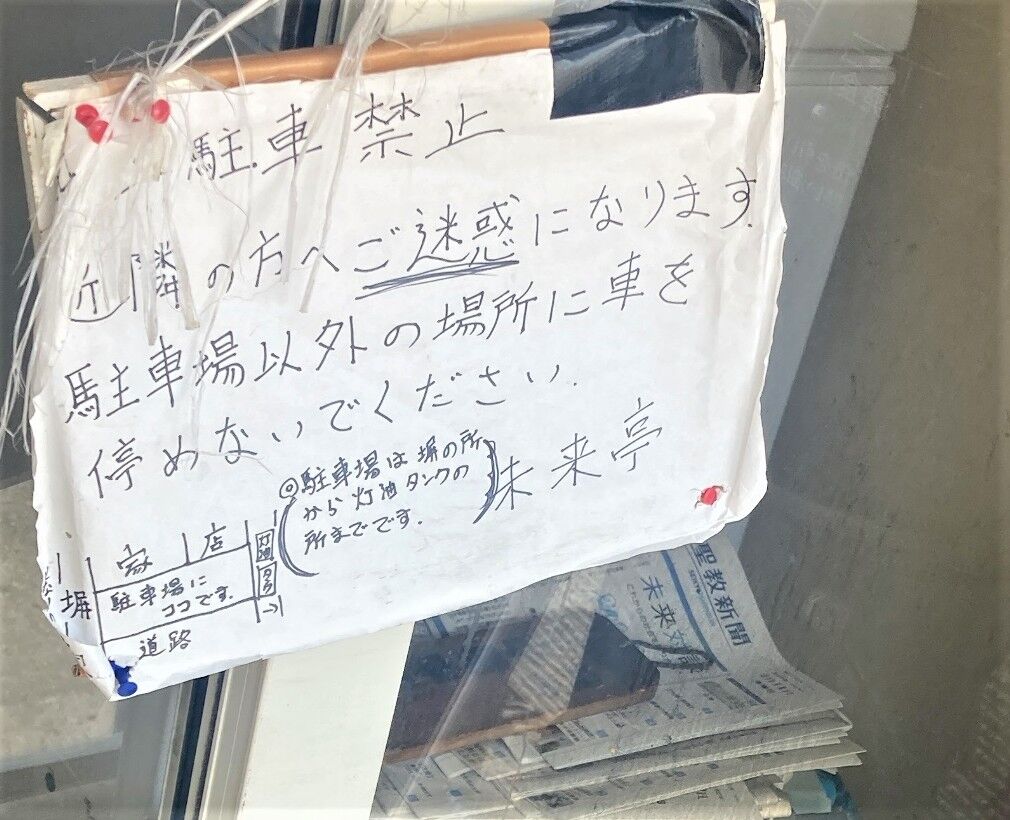 駐車禁止
近隣の方へご迷惑になります。
駐車場以外の場所に車を
停めないでください。
◎駐車場は塀の所
から灯油タンクの
所までです。
未来亭
家
店
灯油
タンク
塀
駐車場は
ココです。
道路
聖教新聞
未来